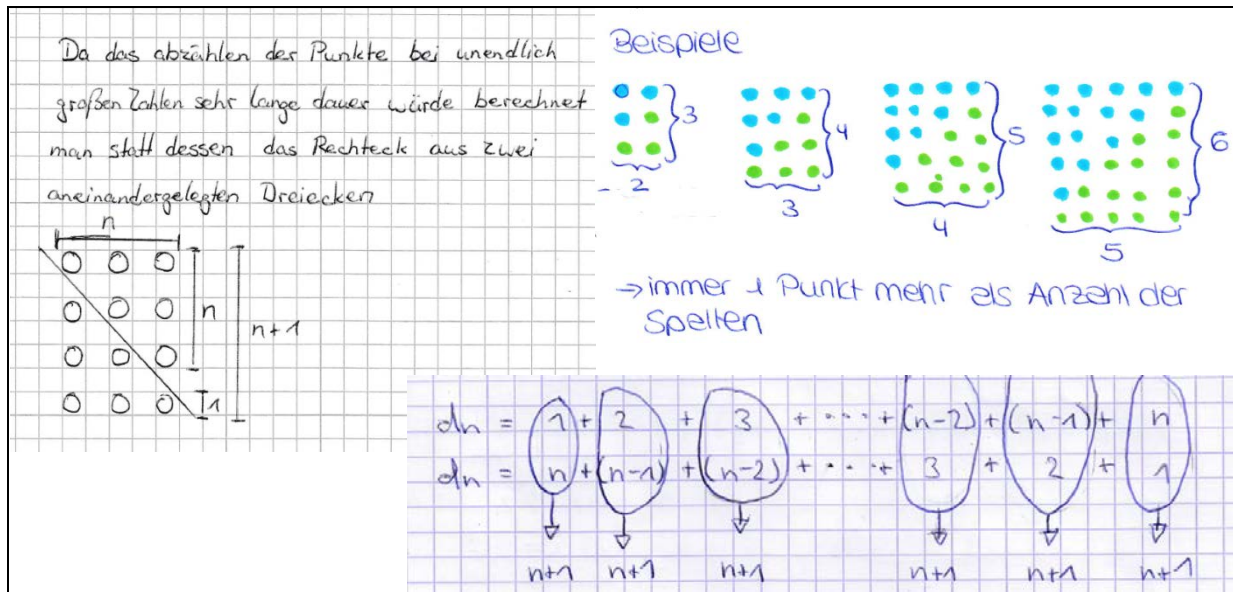 Da das abzählen der Punkte bei unendlich
großen Zahlen sehr lange dauer würde berechnet
man statt dessen das Rechteck aus zwei
aneinandergelegten Dreiecken
n
n
n+1
1
Beispiele
3
2
4
3
5
4
6
5
→ immer 1 Punkt mehr als Anzahl der
Spalten
dn = 1 + 2 + 3 + ···· + (n-2) + (n-1) + n
dn = n + (n-1) + (n-2) + ···· + 3 + 2 + 1
n+1 n+1 n+1 n+1 n+1 n+1